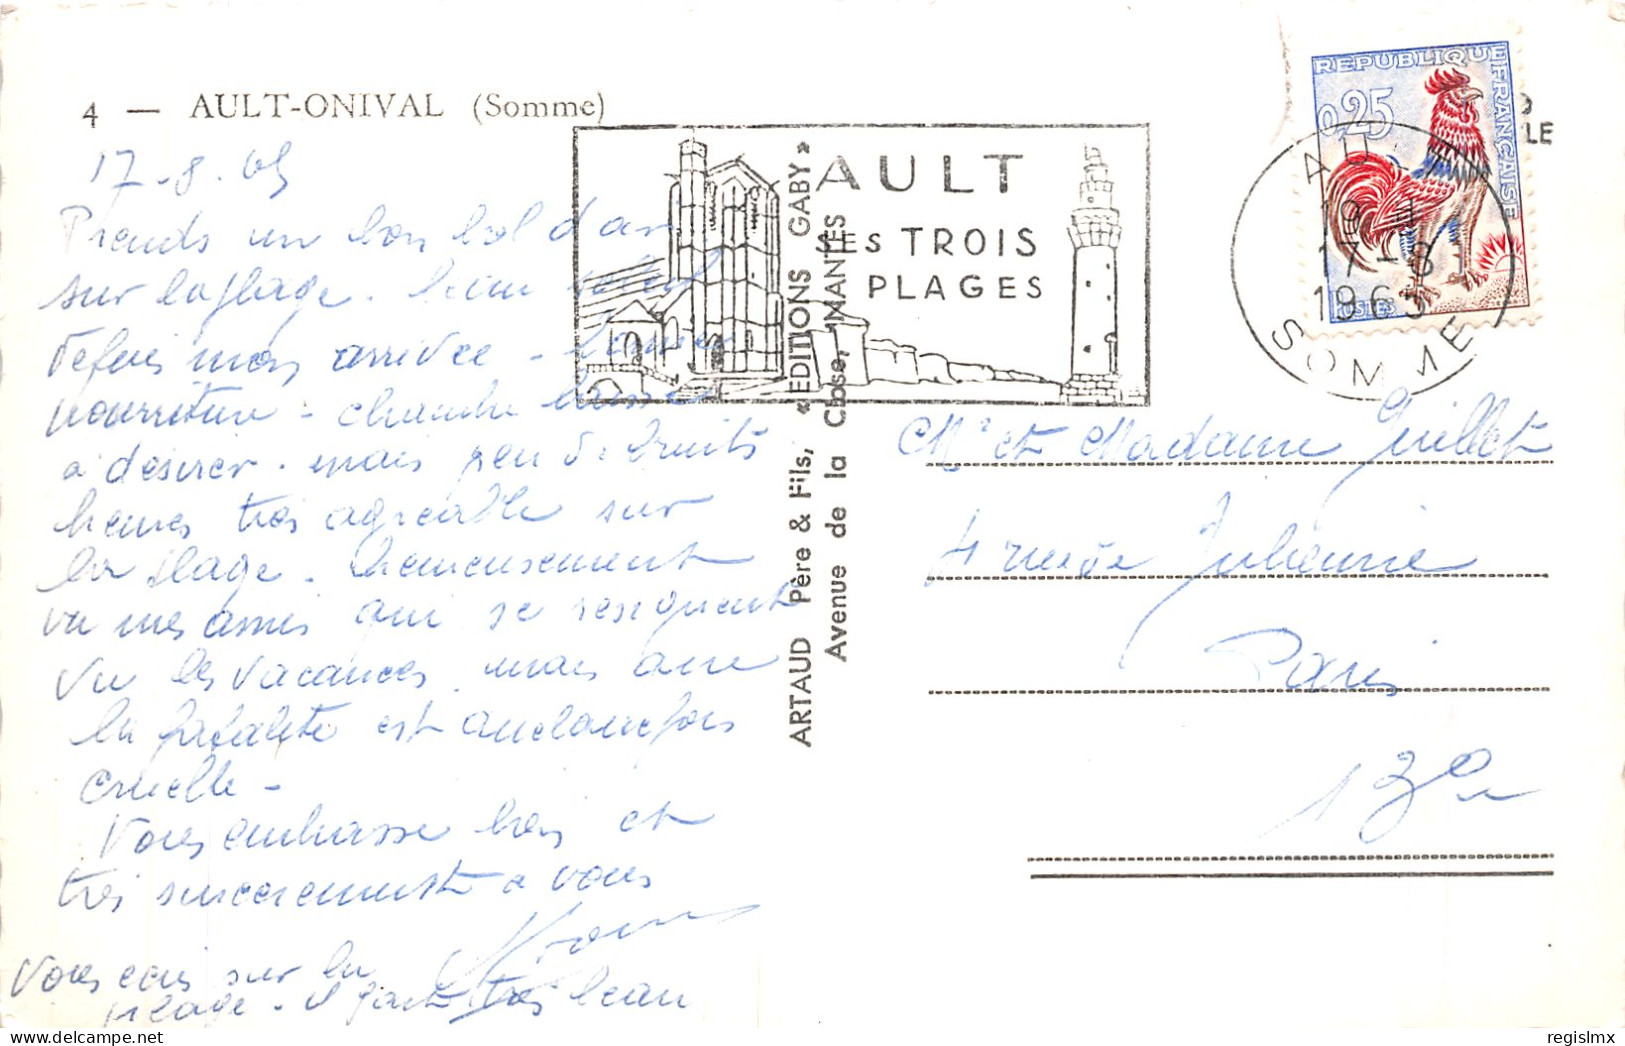 4 — AULT-ONIVAL (Somme)
17-8.65
Prends un bon bol d'air
sur la plage. beau soleil
depuis mon arrivée - bonne
nourriture - chambre laisse
a désirer. mais peu de bruits
heures très agréable sur
la plage. heureusement
vu mes amis qui se
vu les vacances mais
la fatalité est
cruelle -
Vous embrasse bien et
très sincerement a vous
Vous ecris sur la
plage - il fait très beau
ARTAUD Père & Fils, « EDITIONS GABY »
Avenue de la Close, NANTES
AULT
SES TROIS
PLAGES
REPUBLIQUE FRANÇAISE
0,25
POSTES
AULT
19 H
17-8
1963
SOMME
LE
Mr et Madame Guillet
4 rue de Julienne
Paris
13e
regislmx